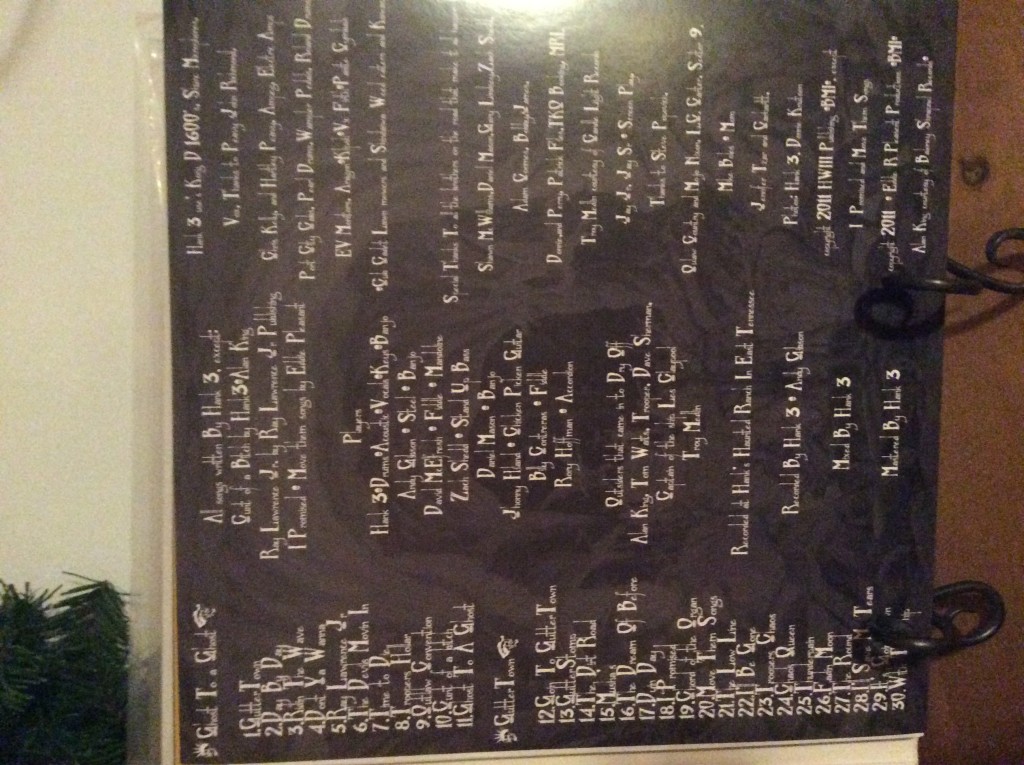 Ghost To a Ghost
1.GutterTown
2.Day By Day
3.Ridin The Wave
4.Dont Ya Wanna
5.Ray Lawrence Jr
6.The Devils Movin In
7.Time to Die
8.Troopers Hollar
9.Outlaw Convention
10.Cunt of a bitch
11.Ghost To A Ghost
GutterTown
12.Goin To GutterTown
13.GutterStomp
14.The Dirt Road
15.Musha's
16.The Dream Of Before
17.Dyin Day
18.I Promised
19.Chord of the Organ
20.Move Them Songs
21.The Low Line
22.I'll Be Gone
23.Troopers Chaos
24.Chaos Queen
25.Thunderpain
26.Fadin Moon
27.The Round
28.I'll Save My Tears
29.
30.With The
All songs written By Hank 3, except:
Cunt of a Bitch by Hank3•Alan King
Ray Lawrence Jr. by Ray Lawrence Jr. Publishing
I Promised • Move them songs by Eddie Pleasant
Players
Hank 3•Drums•Acoustic•Vocals•Keys•Banjo
Andy Gibson • Steel • Banjo
David McElfresh • Fiddle • Mandoline
Zach Shedd • Stand Up Bass
Daniel Mason • Banjo
Johnny Hiland • Chicken Picken Guitar
Billy Contreras • Fiddle
Rory Hoffman • Accordion
Outsiders that came in to Dry Off
Alan King, Tom Waits, Trooper, Dave Sherman,
Captain of the ship Les Claypool
Troy Medlin
Recorded at Hank's Haunted Ranch In East Tennessee
Recorded By Hank 3 • Andy Gibson
Mixed By Hank 3
Mastered By Hank 3
Hank 3 use's Korg D 1600's, Shure Microphones,
Vox, Thanks to Peavy John Richmond,
Chris Kelly, and Hartley Peavy, Ampeg, Electric Amps
Port City Cabs, Pearl Drums, Wampler Pedals, Roland Drums
EV Monitors,
•Cub Cadet Lawn mowers and Weed eaters and
Special Thanks To all the brothers on the road that make it all happen
Shawn McWilliams,Daniel Mason,Gary Lindsey,Zach Shedd
Adam Coomes, BobbyJames,
Donnie,and Perry, Patrick TKO Booking, MRI,
Troy Medlin courtesy of Candle Light Records
Jay Jr, Jay Sr • Screen Play,
Thanks to Steve Popovich,
Outlaw Country and Mojo Nixon, Sector 9,
Mike • Mom
Jennifer Tzar and Carhartt,
Photos: Hank 3, Donnie Knutson
copyright 2011 HWIII Publishing •BMI•, except
I Promised and Move Them Songs
copyright 2011 • Eddie R Pleasant Productions •BMI•
Alan King courtesy of Records•